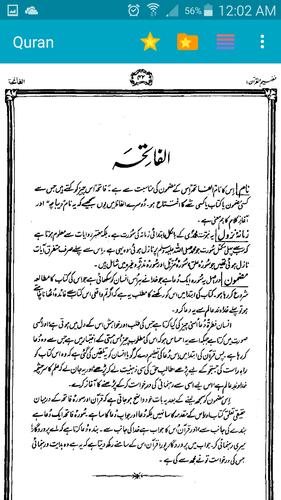 12:02 AM
56%
Quran
الفاتحہ
تفہیم القرآن ۱
الفاتحہ
نام | اِس کا نام الفاتحہ اِس کے مضمون کی مناسبت سے ہے۔ فاتحہ اُس چیز کو کہتے ہیں جس سے
کسی مضمون یا کتاب یا کسی شے کا افتتاح ہو۔ دُوسرے الفاظ میں یوں سمجھیے کہ یہ نام دیباچہ اور
آغازِ کلام کا ہم معنی ہے۔
زمانۂ نزول | یہ نبوتِ محمدی کے بالکل ابتدائی زمانہ کی سُورت ہے۔ بلکہ معتبر روایات سے معلوم ہوتا ہے
کہ سب سے پہلی مکمل سُورت جو محمد صلی اللہ علیہ وسلم پر نازل ہوئی وہ یہی ہے۔ اس سے پہلے صرف متفرق آیات
نازل ہوئی تھیں جو سُورۂ علق، سُورۂ مُزمّل اور سُورۂ مدثر وغیرہ میں شامل ہیں۔
مضمون | دراصل یہ سُورۃ ایک دُعا ہے جو خدا نے ہر اُس انسان کو سکھائی ہے جو اس کی کتاب کا مطالعہ
شروع کر رہا ہو۔ کتاب کی ابتدا میں اس کو رکھنے کا مطلب یہ ہے کہ اگر تم واقعی اس کتاب سے فائدہ اُٹھانا چاہتے
ہو تو پہلے خداوندِ عالم سے یہ دعا کرو۔
انسان فطرۃً دُعا اُسی چیز کی کیا کرتا ہے جس کی طلب اور خواہش اس کے دل میں ہوتی ہے، اور اُسی
صورت میں کرتا ہے جبکہ اسے یہ احساس ہو کہ اس کی مطلوب چیز اُس ہستی کے اختیار میں ہے جس سے وہ
دعا کر رہا ہے۔ پس قرآن کی ابتدا میں اس دعا کی تعلیم دے کر گویا انسان کو یہ تلقین کی گئی ہے کہ وہ اس کتاب کو
راہِ راست کی جستجو کے لیے پڑھے، طالبِ حق کی سی ذہنیت لے کر پڑھے، اور یہ جان لے کہ علم کا سرچشمہ
خداوندِ عالم ہے، اس لیے اسی سے رہنمائی کی درخواست کر کے پڑھنے کا آغاز کرے۔
اِس مضمون کو سمجھ لینے کے بعد یہ بات خود واضح ہو جاتی ہے کہ قرآن اور سُورۂ فاتحہ کے درمیان
حقیقی تعلق کتاب اور اس کے مقدمہ کا سا نہیں بلکہ دُعا اور جوابِ دُعا کا سا ہے۔ سُورۂ فاتحہ ایک دُعا ہے
بندے کی جانب سے، اور قرآن اس کا جواب ہے خدا کی جانب سے۔ بندہ دُعا کرتا ہے کہ اے پروردگار!
میری رہنمائی کر۔ جواب میں پروردگار پورا قرآن اس کے سامنے رکھ دیتا ہے کہ یہ ہے وہ ہدایت و رہنمائی
جس کی درخواست تو نے مجھ سے کی ہے۔